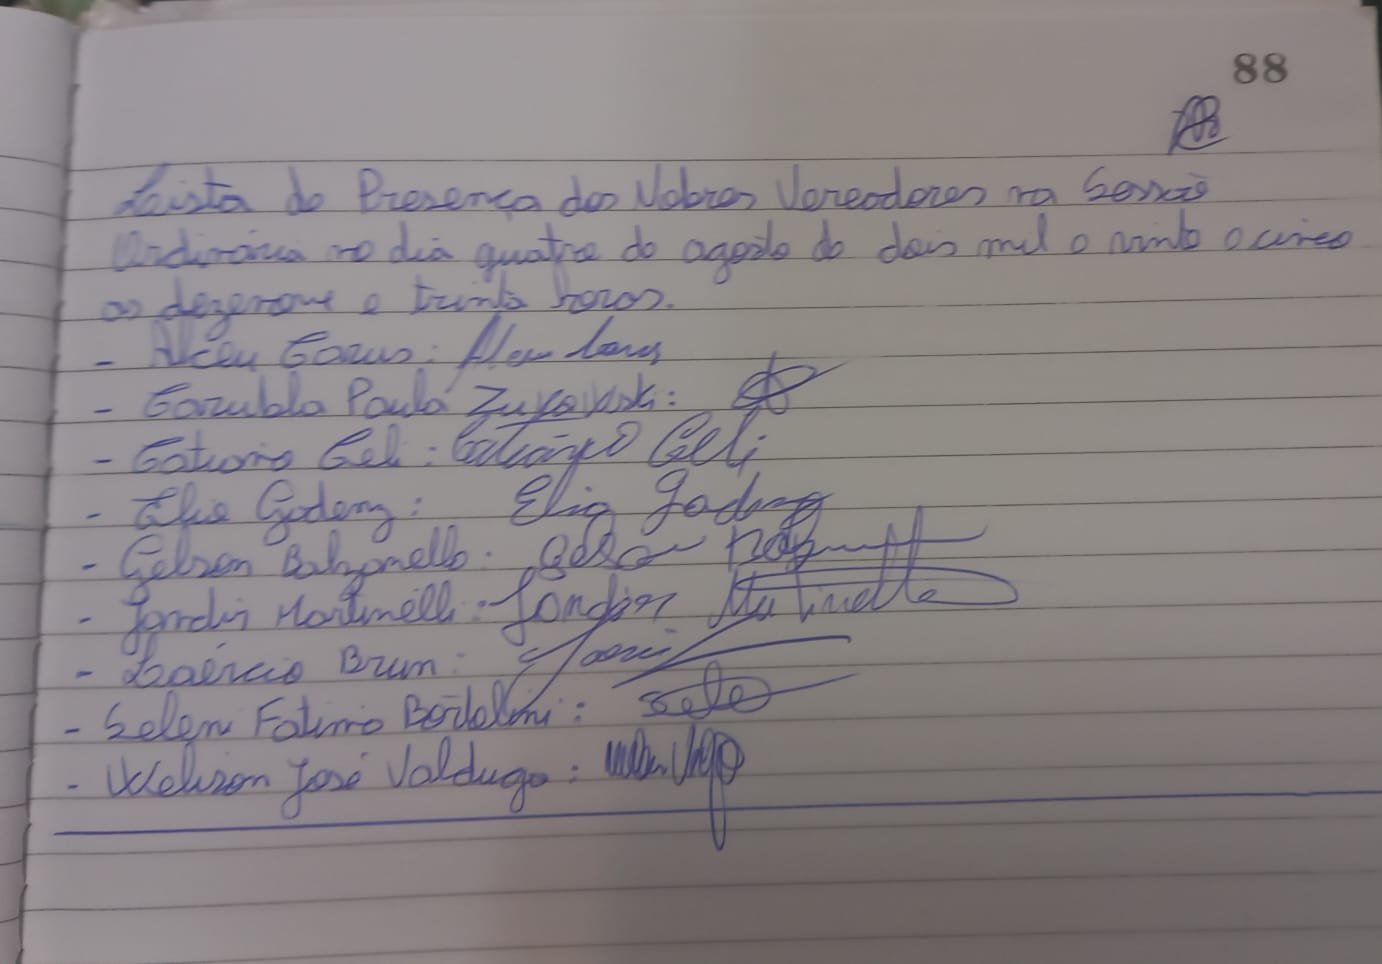 88
Lista de Presença dos Nobres Vereadores na Sessão
Ordinária no dia quatro de agosto de dois mil e vinte e cinco
as dezenove e trinta horas.
- Alceu Gazus:
- Paula Zukovski:
- Catiano Geli: Catiano Geli
- Elio Godeny: Elio Godeny
- Gelson Balzanello: Gelson
- Jandir Martinelli: Jandir Martinello
- Laércio Brun:
- Seleni Fatima Bortolini: Sele
- Welison José Valdugo: